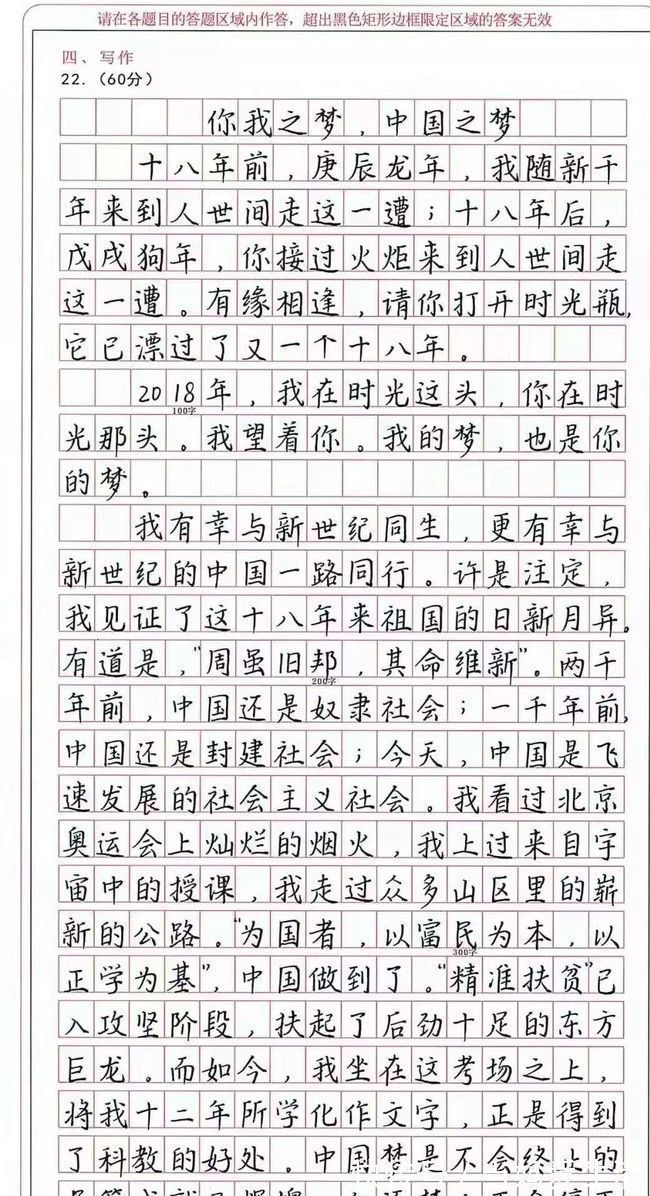 请在各题目的答题区域内作答，超出黑色矩形边框限定区域的答案无效
四、写作
22.（60分）
你我之梦，中国之梦
十八年前，庚辰龙年，我随新千
年来到人世间走这一遭；十八年后，
戊戌狗年，你接过火炬来到人世间走
这一遭。有缘相逢，请你打开时光瓶，
它已漂过了又一个十八年。
2018年，我在时光这头，你在时
100字
光那头。我望着你。我的梦，也是你
的梦。
我有幸与新世纪同生，更有幸与
新世纪的中国一路同行。许是注定，
我见证了这十八年来祖国的日新月异。
有道是，“周虽旧邦，其命维新”。两千
200字
年前，中国还是奴隶社会；一千年前，
中国还是封建社会；今天，中国是飞
速发展的社会主义社会。我看过北京
奥运会上灿烂的烟火，我上过来自宇
宙中的授课，我走过众多山区里的崭
新的公路。“为国者，以富民为本，以
300字
正学为基”，中国做到了。“精准扶贫”已
入攻坚阶段，扶起了后劲十足的东方
巨龙。而如今，我坐在这考场之上，
将我十二年所学化作文字，正是得到
了科教的好处。中国梦是不会终止的